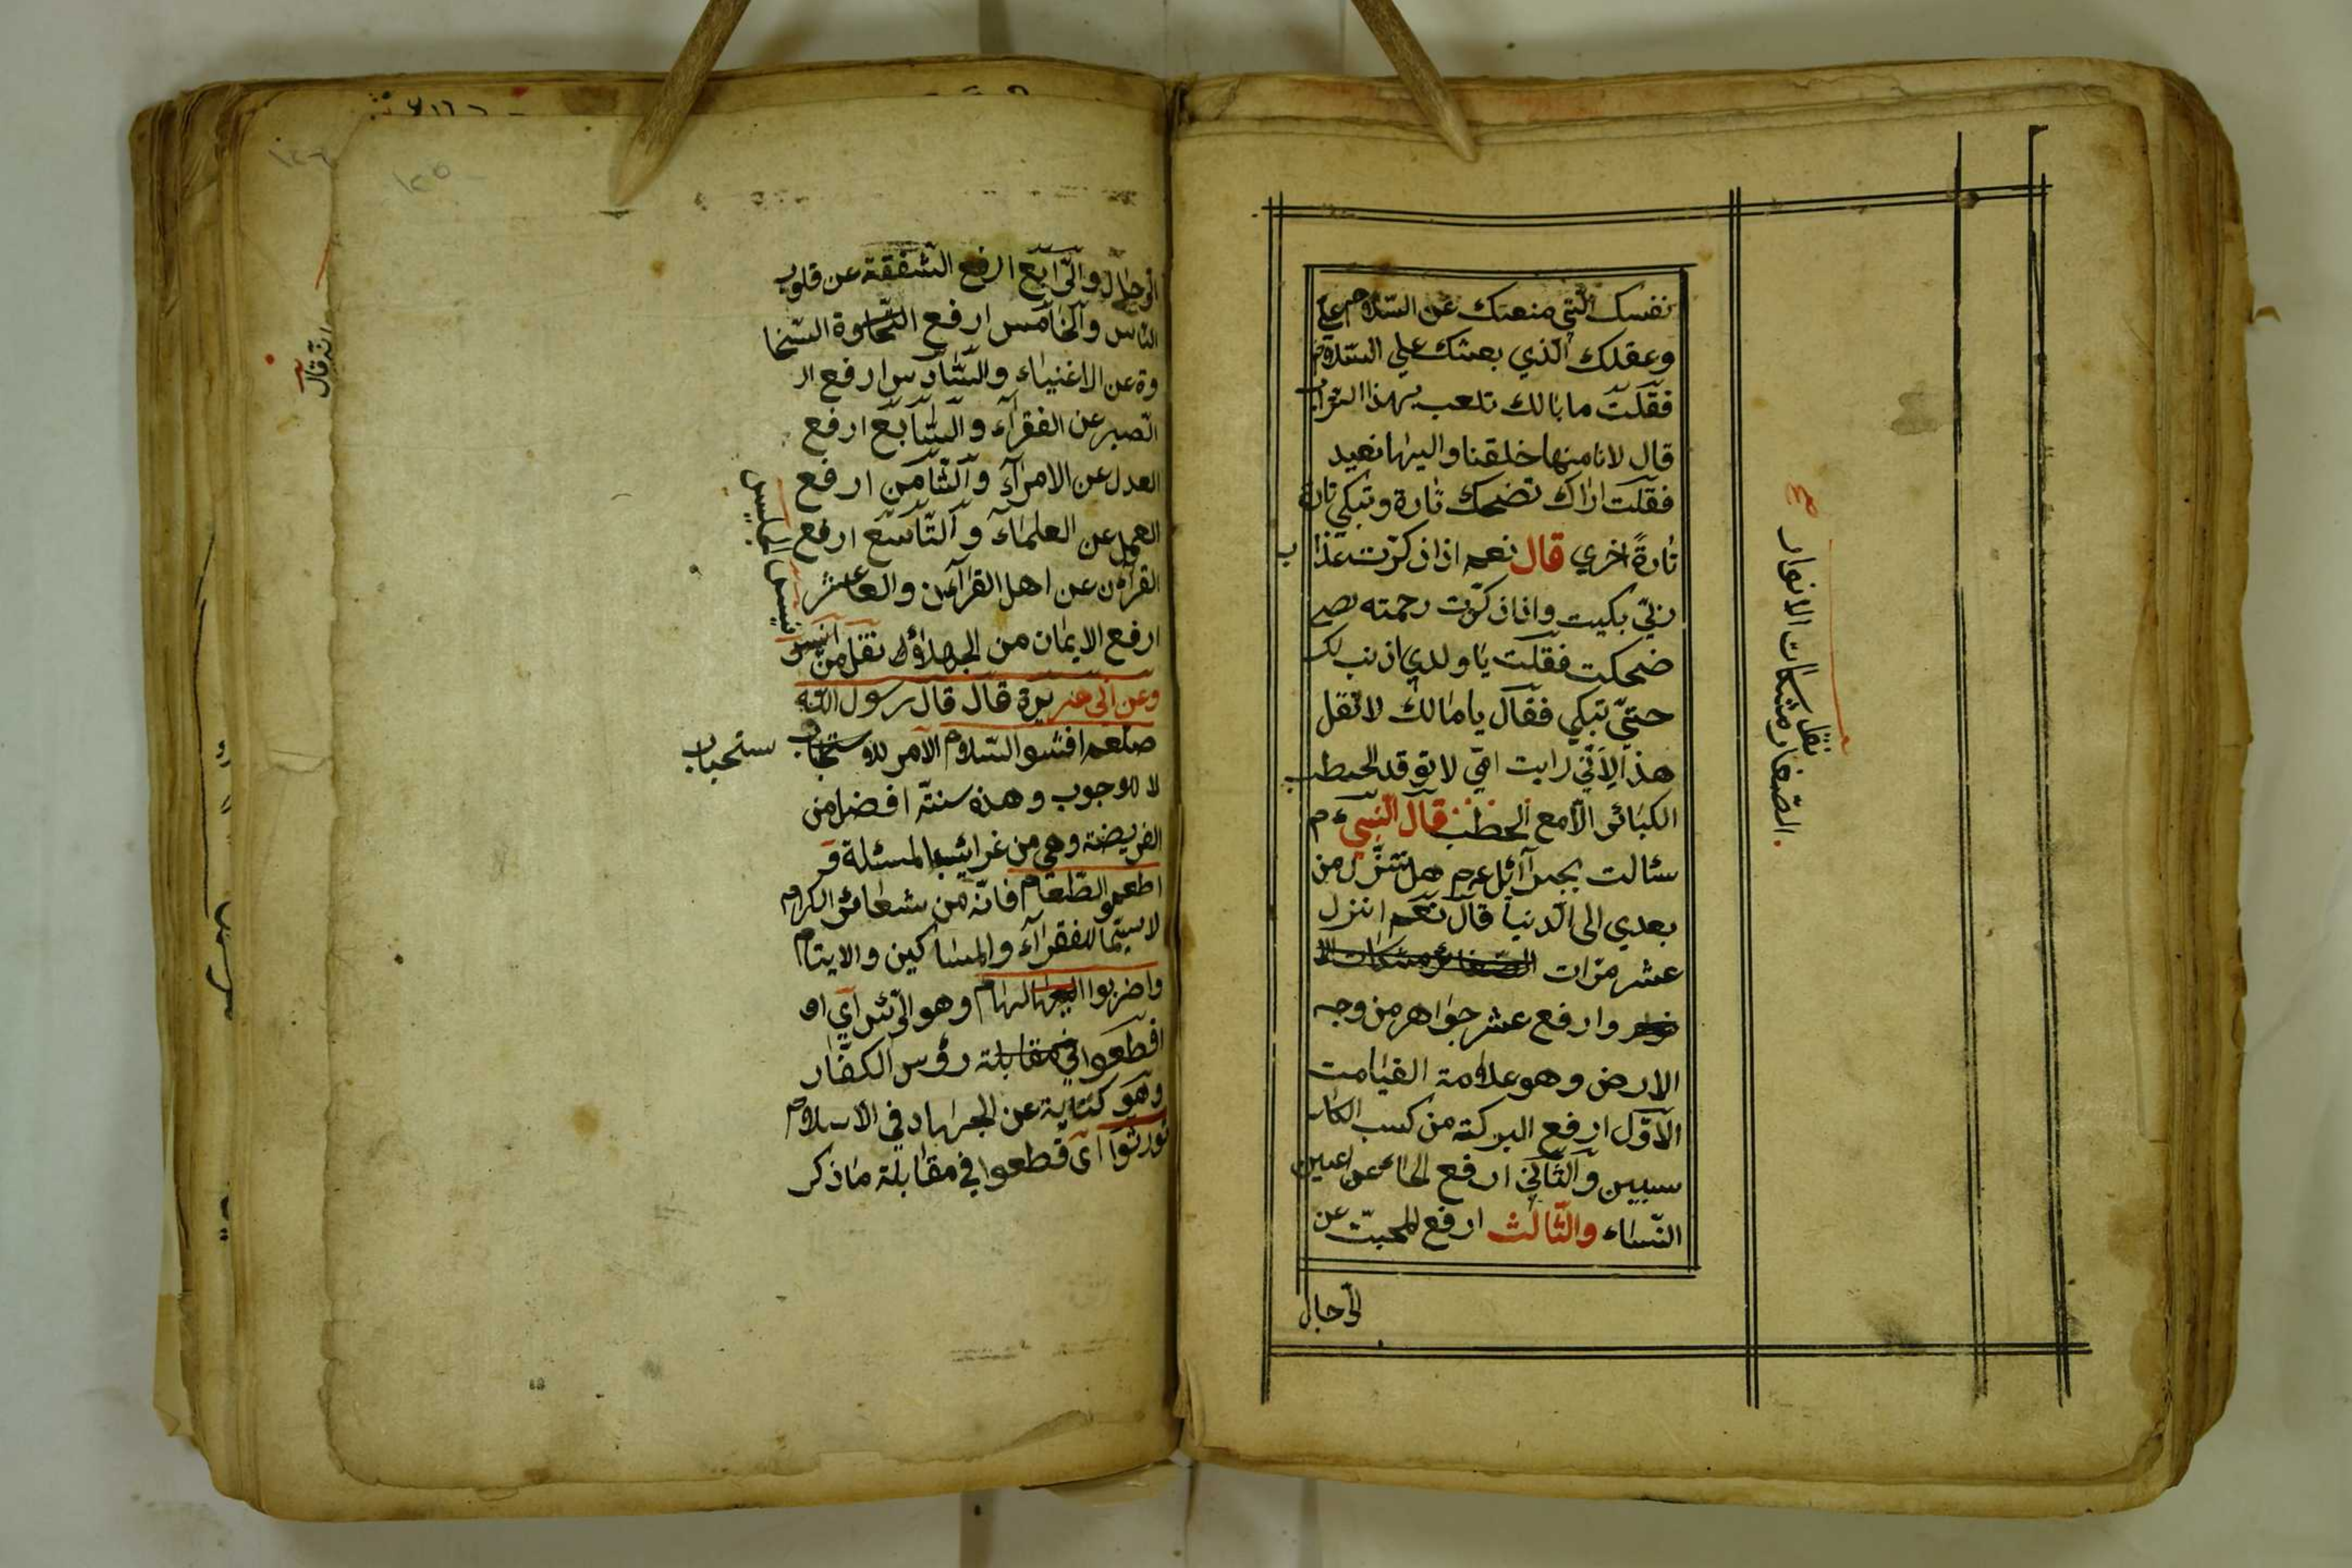 نفسك الّتي منعتك عن السّلام علي
وعقلك الّذي بعثك علي السّلام
فقلت ما بالك تلعب بهذا التراب
قال لانا منها خلقنا واليها نعيد
فقلت اراك تضحك تارة وتبكي تارة
تارةً اخري قال نعم اذا ذكرت عذاب
ربّي بكيت واذا ذكرت رحمته
ضحكت فقلت يا ولدي اذنب لك
حتيّ تبكي فقال يا مالك لا تقل
هذا لانّي رايت امّي لا توقد الحطب
الكبائر الّا مع الحطب قال النّبيّ عم
سئالت بجبرآئل عم هل تنزّل من
بعدي الى الدنيا قال نعم انزل
عشر مرّات الصّغائر مشكات الا
نوار وارفع عشر جواهر من وجه
الارض وهو علامة القيامت
الاوّل ارفع البركة من كسب الكا
سبين والثّاني ارفع الحاء عن اعين
النّساء والثّالث ارفع المحبّت عن
الرّجال
نقل
الصّغار مشكات الانوار
الرّجال والرّابع ارفع الشّفقة عن قلوب
النّاس والخامس ارفع السّخاوة السّخا
وة عن الاغنياء والسّادس ارفع ا
الصبر عن الفقرآء والسّابع ارفع
العدل عن الامرآء والثّامن ارفع
العمل عن العلمآء والتّاسع ارفع
القرآن عن اهل القرآن والعاشر
ارفع الايمان من الجهلاؤ نقل من انيس
الجليس
وعن ابي هريرة قال قال رسول اللّه
صلعم افشو السّلام الامر للاستحباب ستحباب
لا للوجوب وهذه سنتّه افضل من
الفريضة وهي من غرائب المسئلة
اطعمو الطّعام فانّه من شعائر الكرام
لا سيّما للفقرآء والمساكين والايتام
واضربوا الهام وهو الرّئس آي او
اقطعوا في مقابلة رؤس الكفّار
وهو كناية عن الجهاد في الاسلام
تورثوا آي قطعوا في مقابلة ما ذكر
انه قال